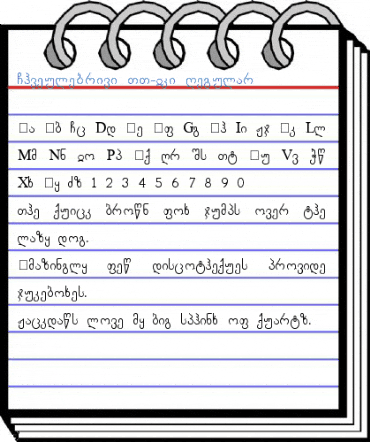 ჩჰვეულებრივი თთ-ჲკი ღეგულარ
□ა □ბ ჩც Dდ □ე □ფ Gგ □ჰ Iი ჟჯ □კ Lლ
Mმ Nნ ჲო Pპ □ქ ღრ შს თტ □უ Vვ ჭწ
Xხ □ყ ძზ 1 2 3 4 5 6 7 8 9 0
თჰე ქუიცკ ბროწნ ფოხ ჯუმპს ოვერ ტჰე
ლაზყ დოგ.
□მაზინგლყ ფეწ დისცოტჰექუეს პროვიდე
ჯუკებოხეს.
ჟაცკდაწს ლოვე მყ ბიგ სპჰინხ ოფ ქუარტზ.